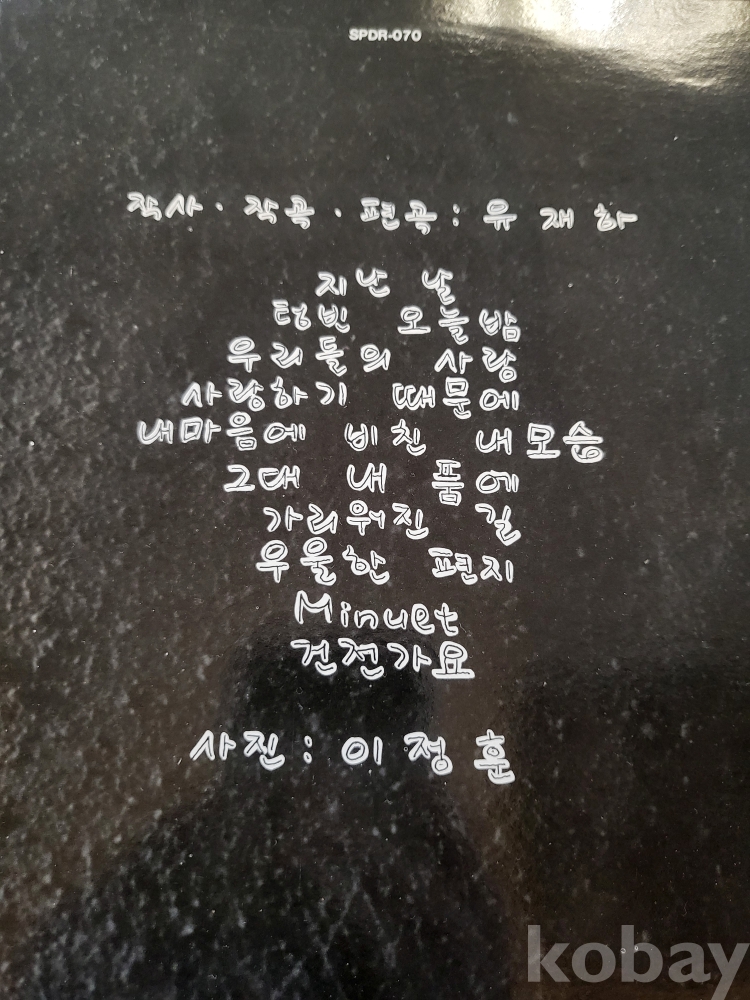 SPDR-070
작사·작곡·편곡: 유재하
지난 날
텅빈 오늘밤
우리들의 사랑
사랑하기 때문에
내마음에 비친 내모습
그대 내 품에
가리워진 길
우울한 편지
Minuet
건전가요
사진: 이정훈
kobay